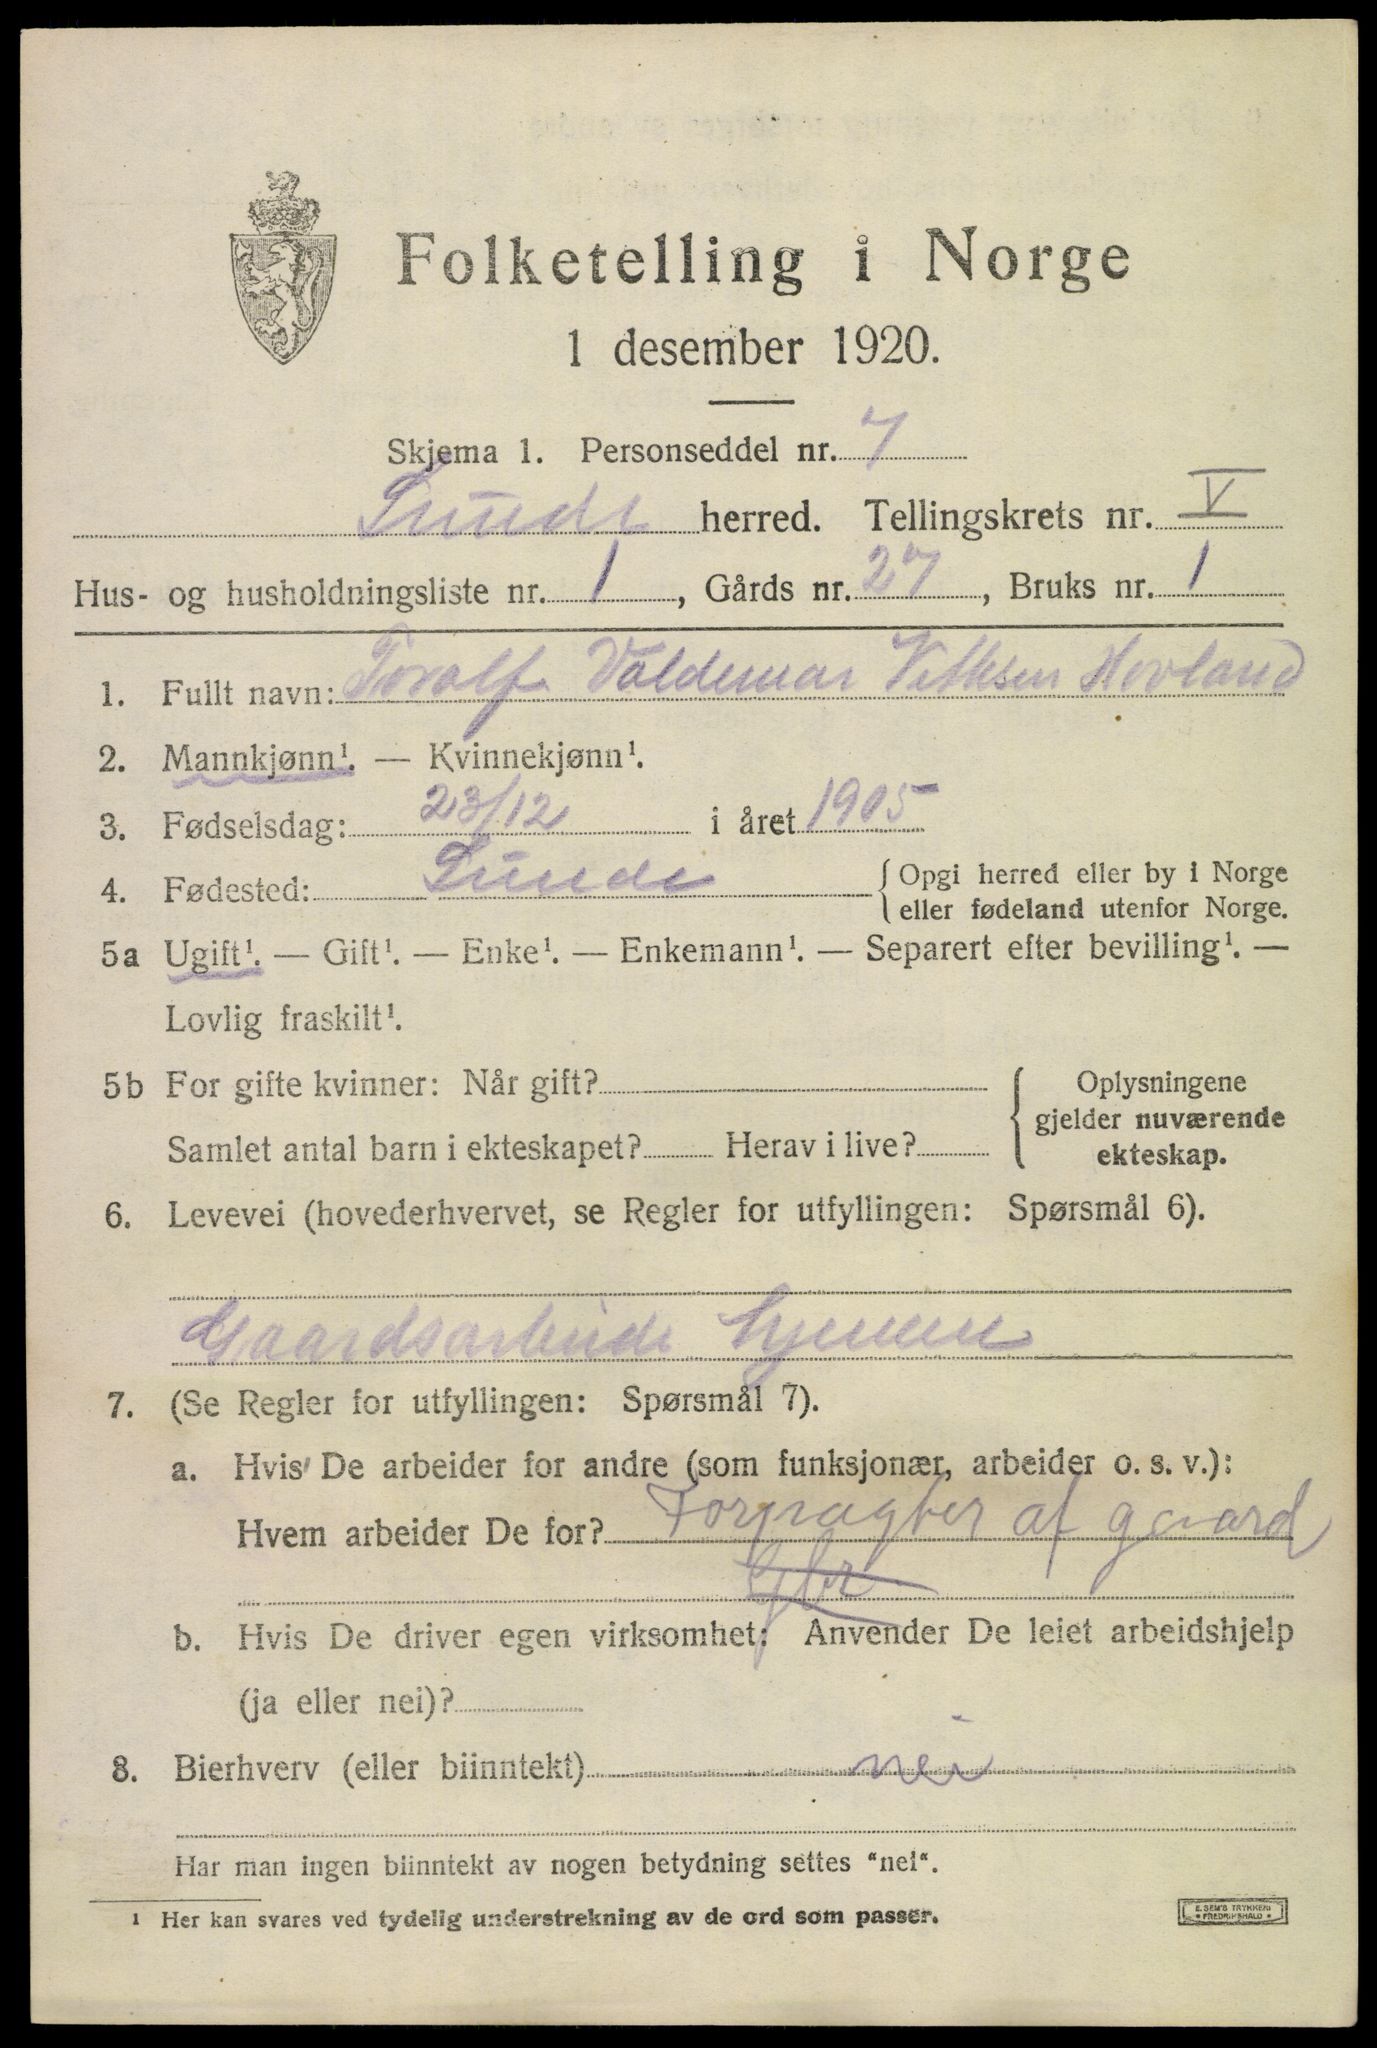 Folketelling i Norge
1 desember 1920.
Skjema 1. Personseddel nr. 7
herred. Tellingskrets nr. V
Hus- og husholdningsliste nr. 1, Gårds nr. 27, Bruks nr. 1
1. Fullt navn: Toralf Valdemar Hovland
2. Mannkjønn¹. — Kvinnekjønn¹.
3. Fødselsdag: 23/12 i året 1905
4. Fødested: {Opgi herred eller by i Norge
eller fødeland utenfor Norge.
5a Ugift¹. — Gift¹. — Enke¹. — Enkemann¹. — Separert efter bevilling¹. —
Lovlig fraskilt¹.
5b For gifte kvinner: Når gift?
Samlet antal barn i ekteskapet? Herav i live?
{Oplysningene
gjelder nuværende
ekteskap.
6. Levevei (hovederhvervet, se Regler for utfyllingen: Spørsmål 6).
Gaardsarbeide hjemme
7. (Se Regler for utfyllingen: Spørsmål 7).
a. Hvis De arbeider for andre (som funksjonær, arbeider o. s. v.):
Hvem arbeider De for? Forpagter af gaard
b. Hvis De driver egen virksomhet: Anvender De leiet arbeidshjelp
(ja eller nei)?
8. Bierhverv (eller biinntekt) nei
Har man ingen biinntekt av nogen betydning settes "nei".
1 Her kan svares ved tydelig understrekning av de ord som passer.
E. SEM'S TRYKKERI
• FREDRIKSHALD •